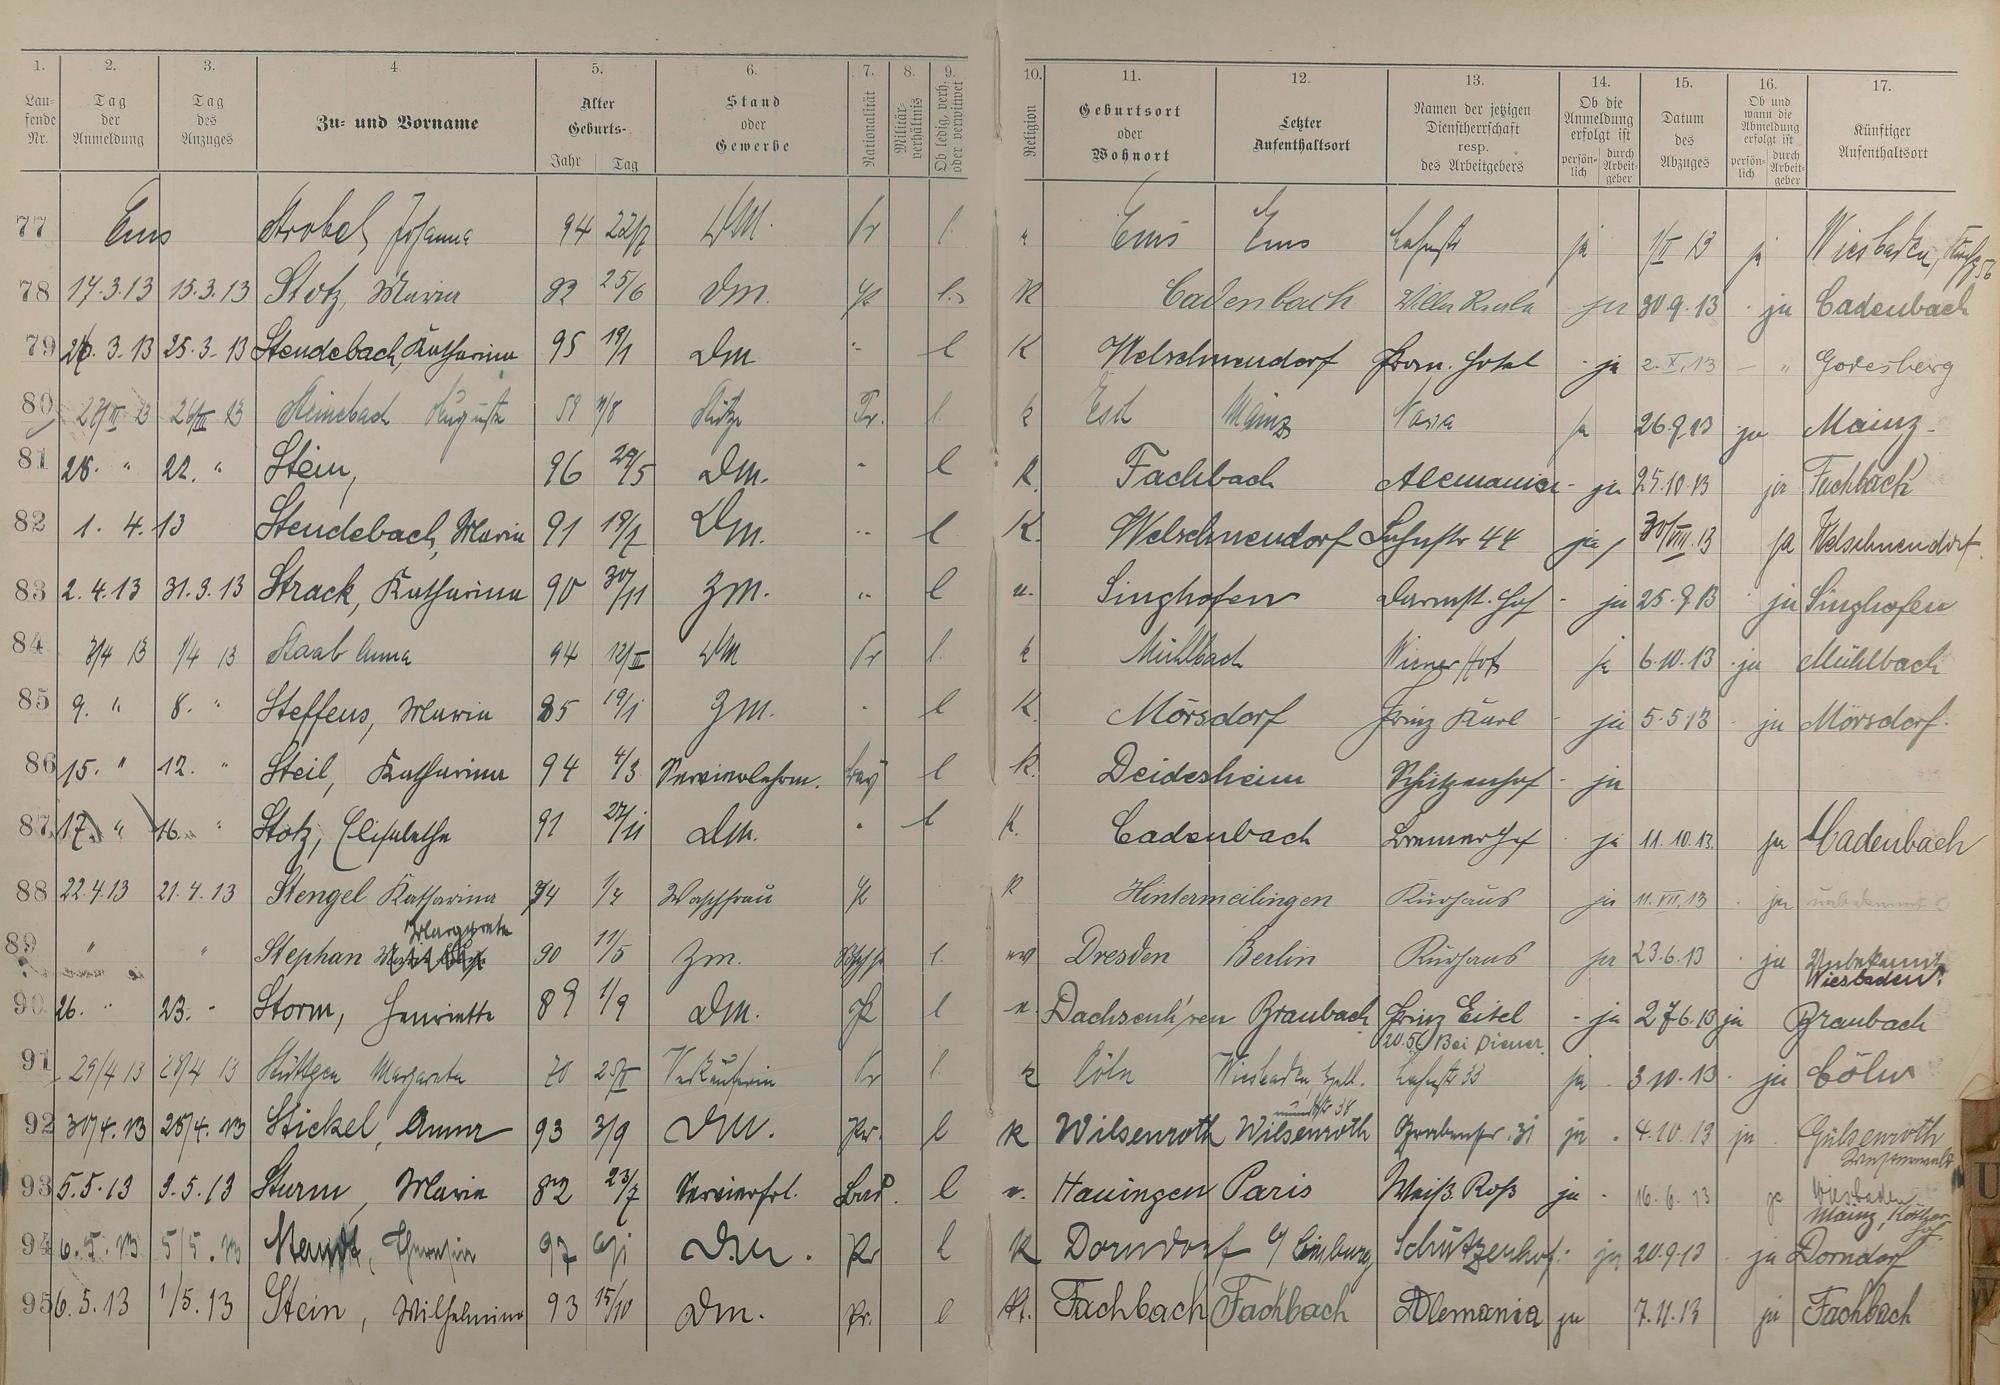 1. 2. 3. 4. 5. 6. 7. 8. 9. 10. 11. 12. 13. 14. 15. 16. 17.
Laufende Nr. Tag der Anmeldung Tag des Anzuges Zu- und Vorname Alter Geburts- Jahr Tag Stand oder Gewerbe Nationalität Militärverhältnis Ob ledig, verh. oder verwitwet Religion Geburtsort oder Wohnort Letzter Aufenthaltsort Namen der jetzigen Dienstherrschaft resp. des Arbeitgebers Ob die Anmeldung erfolgt ist persönlich durch Arbeitgeber Datum des Abzuges Ob und wann die Abmeldung erfolgt ist persönlich durch Arbeitgeber Künftiger Aufenthaltsort
77 Ems Strobel, Johanna 94 22/7 DM. Pr l. Ems Ems Lahnstr ja 13 ja Wiesbaden,
78 17.3.13 15.3.13 Stotz, Maria 92 25/6 Dm. l. K Cadenbach Villa ja 30.9.13 ja Cadenbach
79 26.3.13 25.3.13 Stendebach, Katharina 95 19/1 Dm " l K Welschneudorf Hotel ja 2.X.13 " Godesberg
80 27/III 13 26/III 13 Steinebach Auguste 59 Stütze Pr. l. k Esch Mainz Nassa ja 26.9.13 ja Mainz
81 28. " 22. " Stein, 96 29/5 Dm. " l K. Fachbach Alemania ja 25.10.13 ja Fachbach
82 1. 4. 13 Stendebach, Maria 91 19/2 Dm. " l K. Welschneudorf Lahnstr 44 ja 30/VIII.13 ja Welschneudorf.
83 2.4.13 31.3.13 Strack, Katharina 90 30/11 Zm. " l Singhofen Darmst. Hof ja 25.9.13 ja Singhofen
84 3/4 13 1/4 13 Staab Anna 94 12/II DM Pr l. k Mühlbach Wiener Hof ja 6.10.13 ja Mühlbach
85 9. " 8. " Steffens, Maria 85 19/1 Zm. " l K Mörsdorf Prinz Karl ja 5.5.13 ja Mörsdorf.
86 15. " 12. " Steil, Katharina 94 4/3 Servierlehrm. Bay l K. Deidesheim Schützenhof ja
87 17. " 16. " Stotz, Elisabetha 91 27/11 Dm. " l K. Cadenbach Bremerhof ja 11.10.13. ja Cadenbach
88 22.4.13 21.4.13 Stengel Katharina 74 Waschfrau K Hintermeilingen Kurhaus ja 11.VII.13 ja unbekannt
89 " " Stephan Margareta 90 11/5 Zm. l. Dresden Berlin Kurhaus ja 23.6.13 ja Unbekannt
Wiesbaden.
90 26. " 23. " Storm, Henriette 89 1/9 Dm. l Dachsenh'sen Braubach Prinz Eitel ja 27.6.13 ja Braubach
Bei Diener.
91 29/4 13 28/4 13 Stüttgen Margareta 70 Verkäuferin Pr l. k Cöln Wiesbaden Lahnstr 33 ja 3.10.13 ja Cöln
92 30/4.13 28/4.13 Stickel, Anna 93 3/9 DM. Pr. l K Wilsenroth Wilsenroth Grabenstr. 31 ja 4.10.13 ja
93 5.5.13 3.5.13 Sturm, Maria 82 23/7 Servierfrl. Bad. l Hauingen Paris Weiß. Roß ja 16.6.13 ja Wiesbaden
Mainz,
94 6.5.13 5/5.13 97 Dm. Pr l K Dorndorf b/ Limburg Schützenhof. ja 20.9.13 ja Dorndorf
95 6.5.13 1/5.13 Stein, Wilhelmina 93 15/10 Dm. Pr. l Kt. Fachbach Fachbach Allemania ja 7.11.13 ja Fachbach